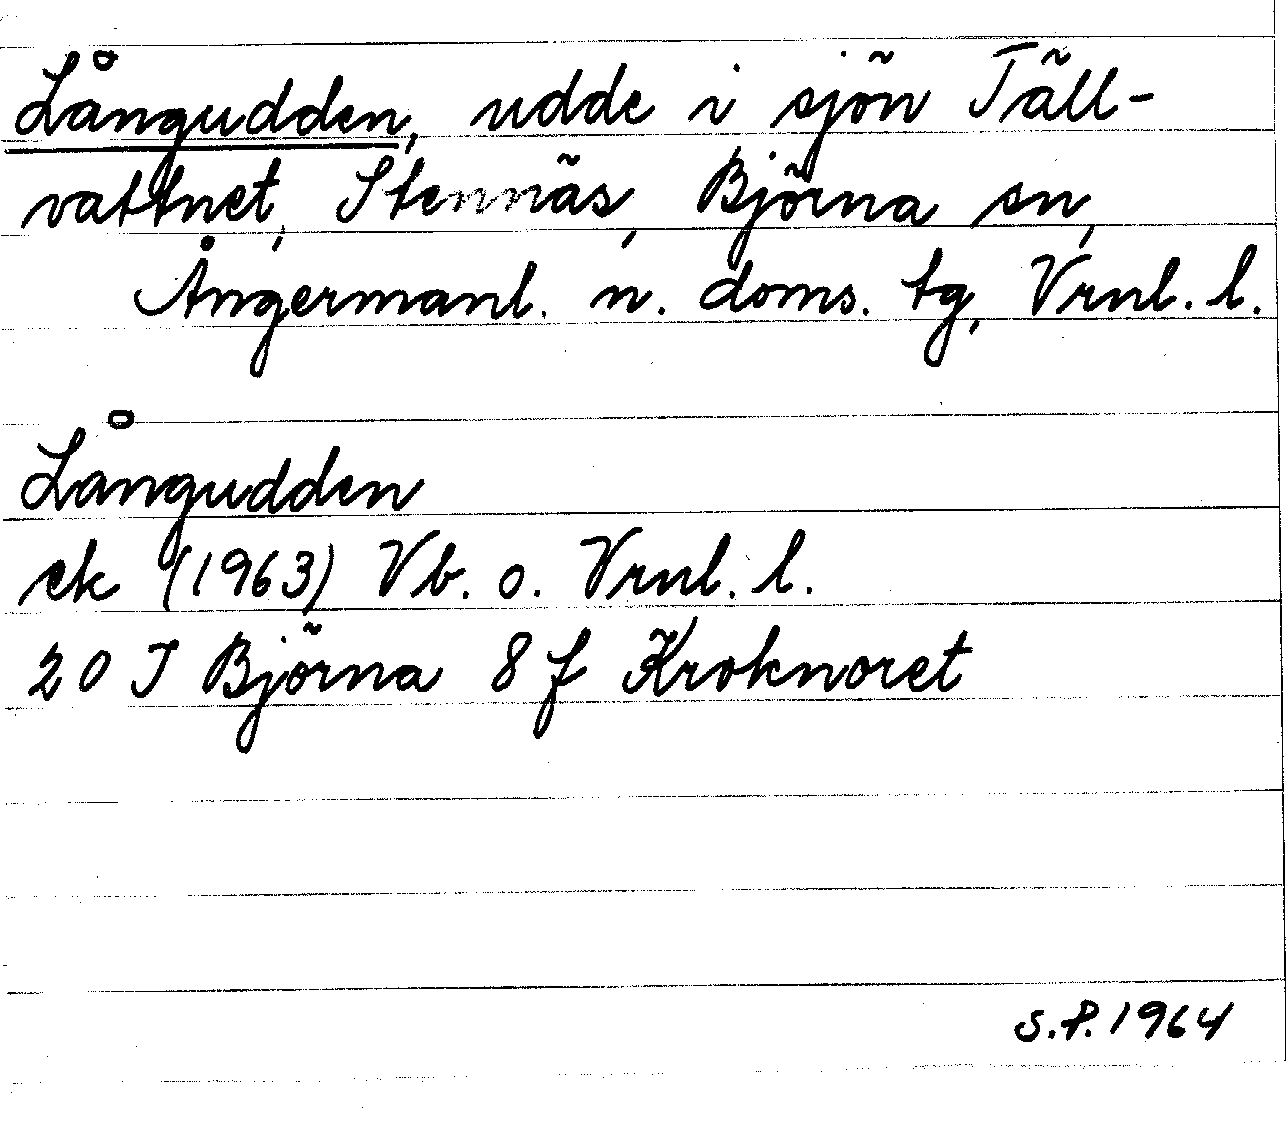 Långudden, udde i sjön Täll-
vattnet, Stennäs, Björna sn,
Ångermanl. n. doms. tg, Vrnl. l.
Långudden
ek (1963) Vb. o. Vrnl. l.
20 J Björna 8 f Kroknoret
S.P. 1964